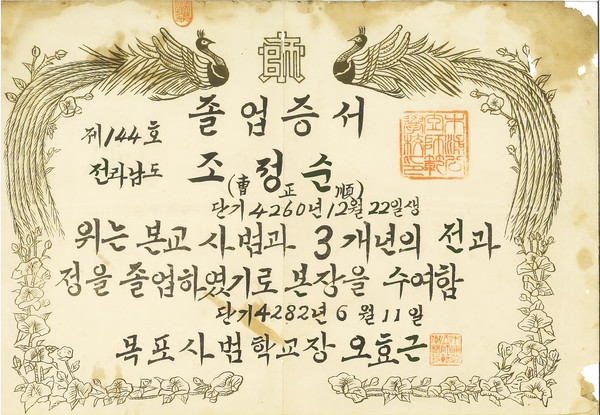 졸업증서
제144호
전라남도 조정순
(曹正順)
단기4260년12월22일생
위는 본교 사범과 3개년의 전과
정을 졸업하였기로 본장을 수여함
단기4282년 6월 11일
목포사범학교장 오효근